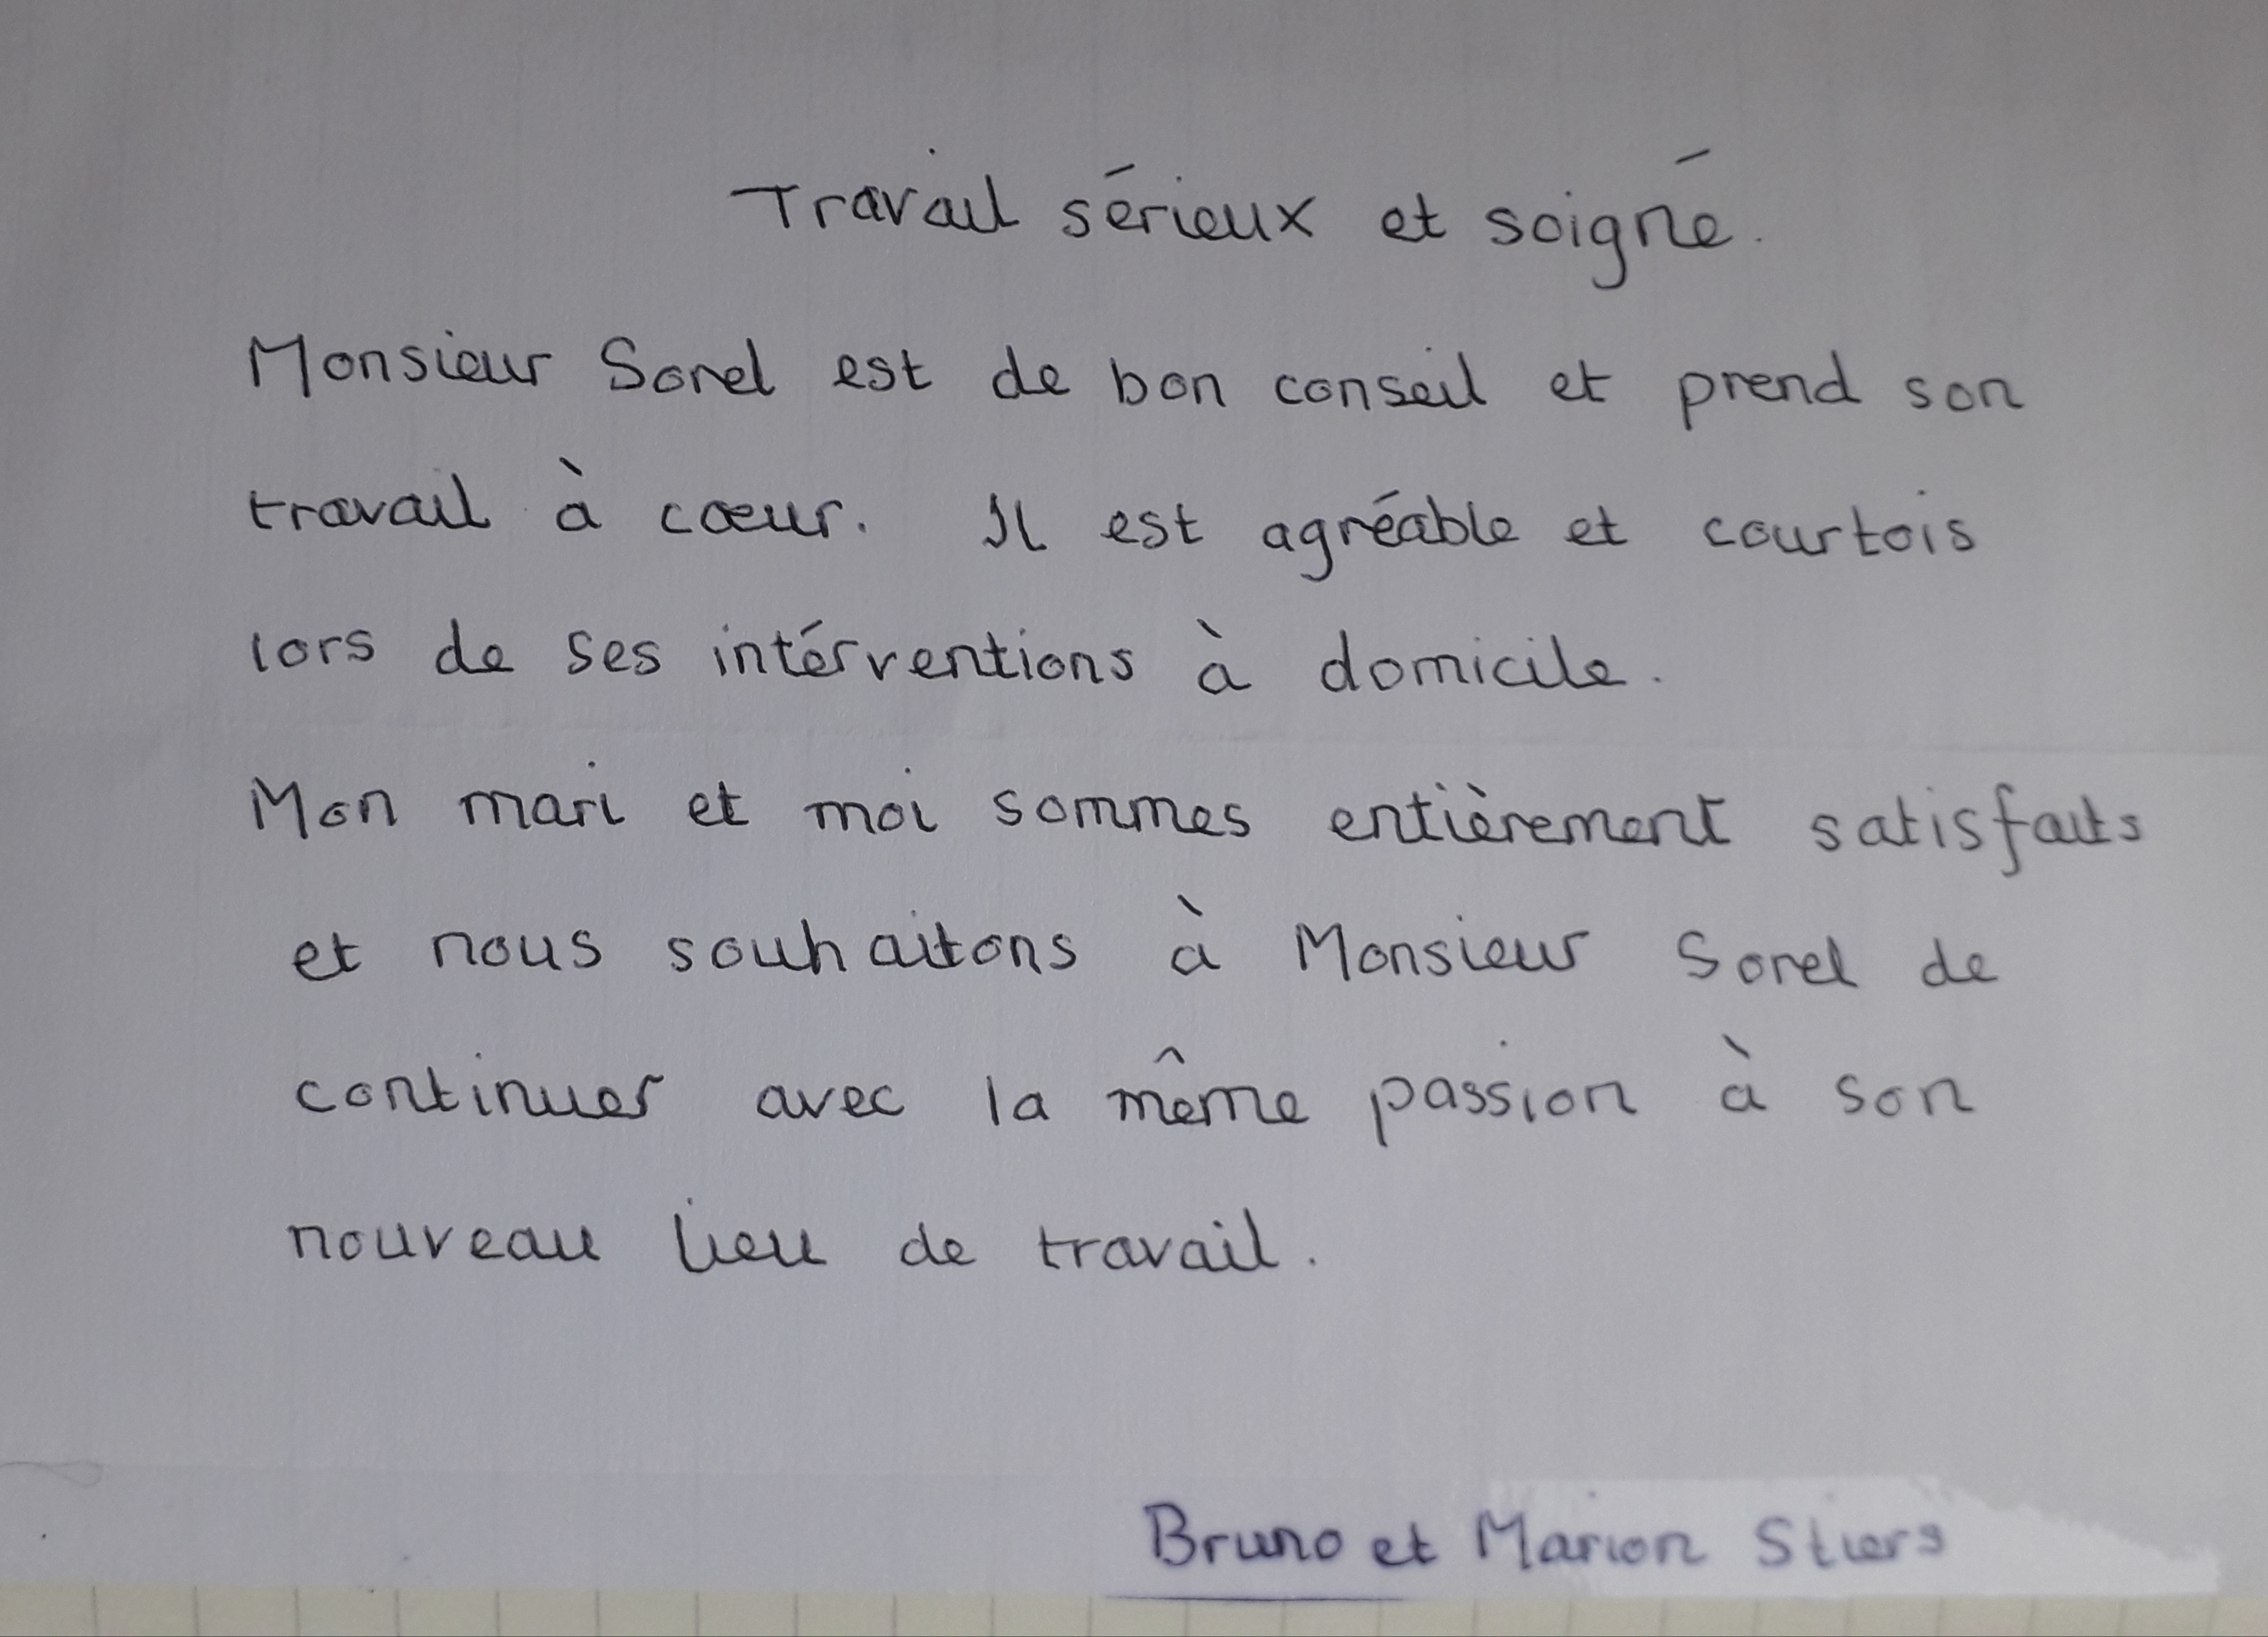 Travail sérieux et soigné.
Monsieur Sorel est de bon conseil et prend son
travail à cœur. Il est agréable et courtois
lors de ses intérventions à domicile.
Mon mari et moi sommes entièrement satisfaits
et nous souhaitons à Monsieur Sorel de
continuer avec la même passion à son
nouveau lieu de travail.
Bruno et Marion Stiers